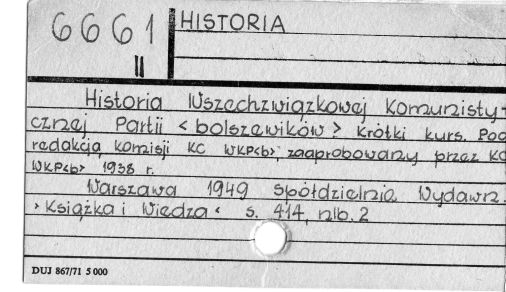 6661 HISTORIA
II
Historia Wszechzwiązkowej Komunisty-
cznej Partii <bolszewików> Krótki kurs. Pod
redakcją komisji KC WKP<b>, zaaprobowany przez KC
WKP<b> 1938 r.
Warszawa 1949 Spółdzielnia Wydawn.
>Książka i Wiedza< s. 414, nlb. 2
DUJ 867/71 5 000